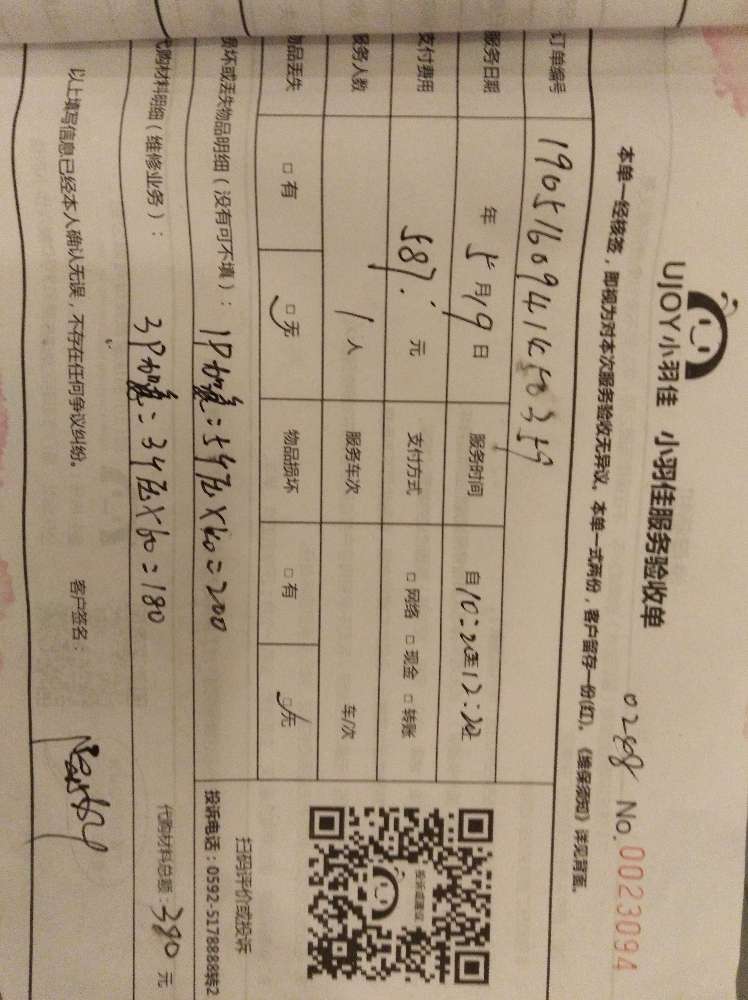 UJOY小羽佳 小羽佳服务验收单
0208 No.0023094
本单一经核签，即视为对本次服务验收无异议。本单一式两份，客户留存一份(红)。《维保须知》详见背面。
订单编号
服务日期 年 5月19日 服务时间 自10:20至12:
支付费用 587. 元 支付方式 □网络 □现金 □转账
服务人数 1人 服务车次 车/次
物品丢失 □有 □无 物品损坏 □有 □无
损坏或丢失物品明细（没有可不填）： 1P加氟=5个压×40=200
代购材料明细（维修业务）： 3P加氟=3个压×60=180
代购材料总额：380元
以上填写信息已经本人确认无误，不存在任何争议纠纷。 客户签名：
投诉或建议
扫码评价或投诉
投诉电话：0592-5178888转2